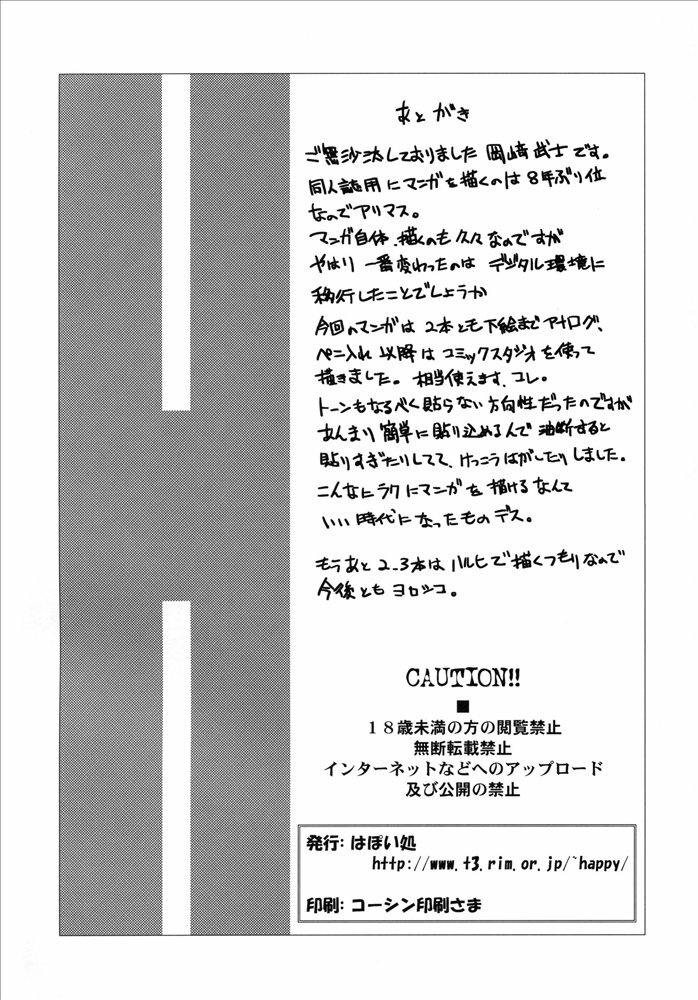 あとがき
ご無沙汰しておりました 岡崎武士です。
同人誌用にマンガを描くのは8年ぶり位
なのでアリマス。
マンガ自体、描くのも久々なのですが
やはり 一番変わったのは デジタル環境に
移行したことでしょうか
今回のマンガは 2本とも下絵までアナログ、
ペン入れ以降はコミックスタジオを使って
描きました。相当使えます、コレ。
トーンもなるべく貼らない方向性だったのですが
あんまり簡単に貼り込めるんで 油断すると
貼りすぎたりしてて、けっこうはがしたりしました。
こんなにラクにマンガを描けるなんて
いい時代になったものデス。
もうあと 2-3本はハルヒで描くつもりなので
今後とも ヨロシコ。
CAUTION!!
■
18歳未満の方の閲覧禁止
無断転載禁止
インターネットなどへのアップロード
及び公開の禁止
発行: はぽい処
http://www.t3.rim.or.jp/~happy/
印刷: コーシン印刷さま